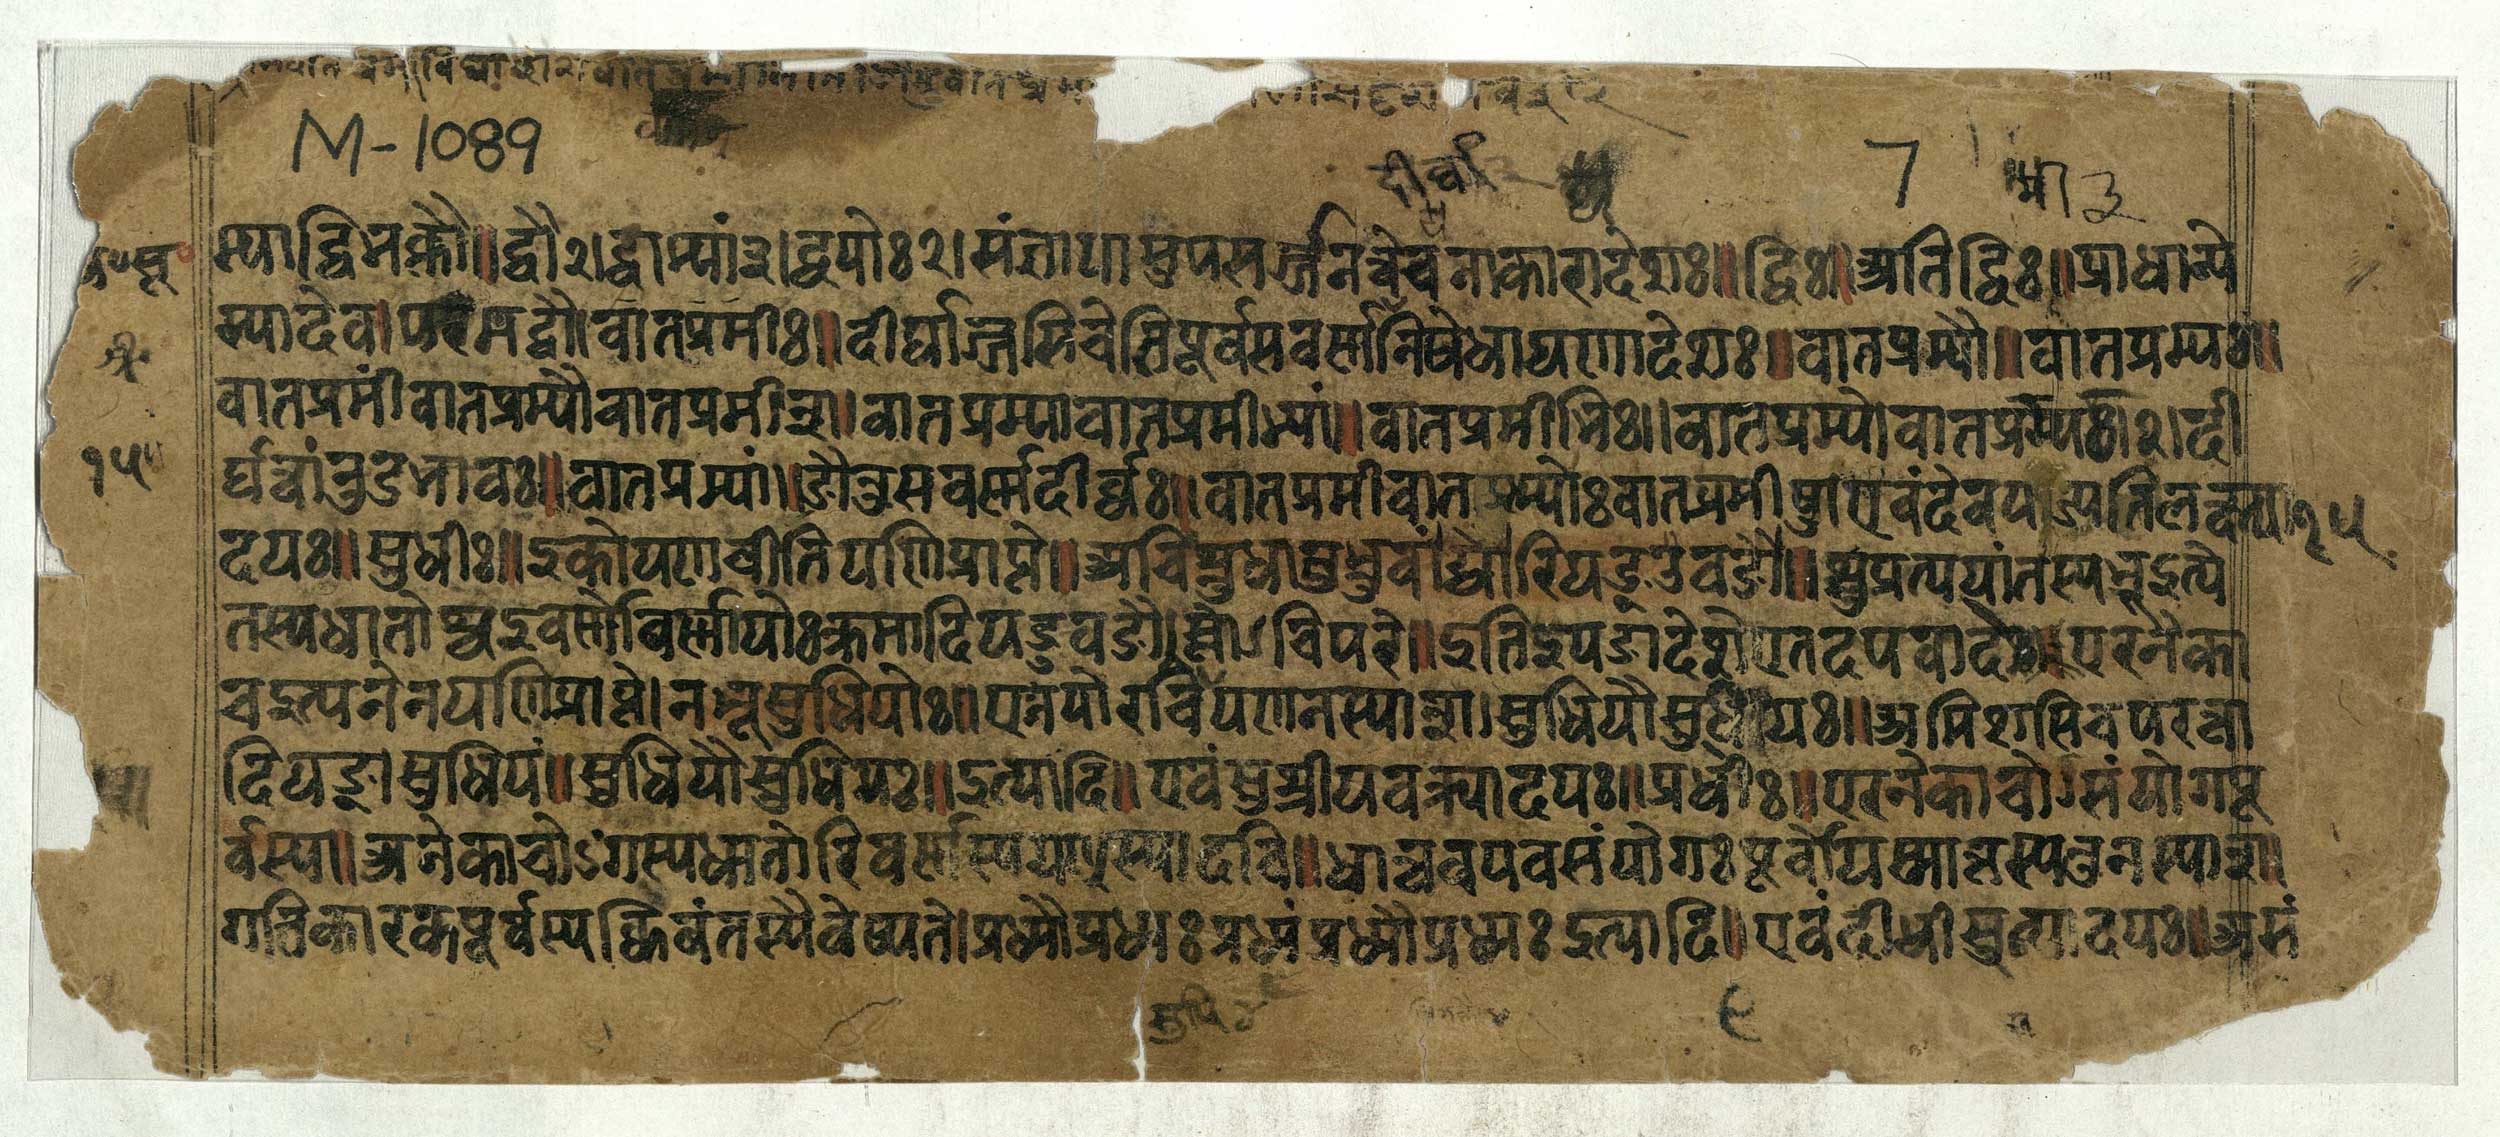 M-1089
दीर्घा
7
३
स्याद्विभक्तौ॥द्वौ२।द्वाभ्यां३।द्वयोः२।संज्ञायामुपसर्ज्जनत्वेचनाकारादेशः॥द्विः॥अतिद्विः॥प्राधान्ये
स्यादेव।परमद्वौ।वातप्रमीः॥दीर्घाज्जसिचेतिपूर्वसवर्णनिषेधाद्यणादेशः॥वातप्रम्यौ॥वातप्रम्यः॥
वातप्रमींवातप्रम्यौवातप्रमीन्॥वातप्रम्यावातप्रमीभ्यां॥वातप्रमीभिः॥वातप्रम्ये।वातप्रम्यः२।दी
१५
र्घत्वांनुडभावः॥वातप्रम्यां॥ङौतुसवर्णदीर्घः॥वातप्रमीवातप्रम्योःवातप्रमीषु।एवंदेवय
१५
दयः॥सुधीः॥इकोयणचीतियणिप्राप्ते॥अचिश्नुधातुभ्रुवांय्वोरियङ्उवङौ॥श्नुप्रत्ययांतस्यभ्रूइत्ये
तस्यधातोश्चइवर्णोवर्णयोःक्रमादियङुवङौस्तोऽचिपरे॥इतिइयङादेशेएतदपवाद एरनेका
चइत्यनेनयणिप्राप्ते।नभूसुधियोः॥एतयोरचियणनस्यात्॥सुधियौसुधियः॥अमिशसिचपरत्वा
दियङ्सुधियं॥सुधियौसुधियः॥इत्यादि॥एवंसुश्रीयवक्र्यादयः॥प्रधीः॥एरनेकाचोऽसंयोगपू
र्वस्य॥अनेकाचोऽंगस्यधातोरिवर्णस्ययण्स्यादचि॥धात्ववयवसंयोगःपूर्वोयस्मात्तस्यतुनस्यात्॥
गतिकारकपूर्वस्यक्विबंतस्यैवेष्यते।प्रध्यौप्रध्यःप्रध्यंप्रध्यौप्रध्यःइत्यादि॥एवंदीधीसुत्यादयः॥असं
९